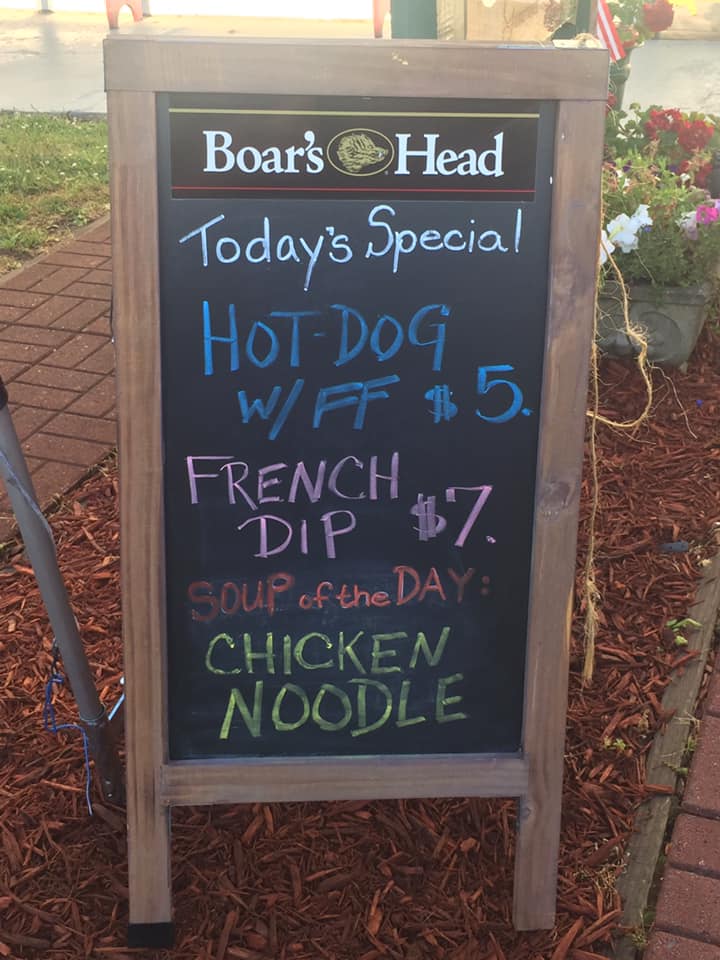 Boar's Head
Today's Special
HOT-DOG
W/FF $5.
FRENCH
DIP $7.
SOUP of the DAY:
CHICKEN
NOODLE